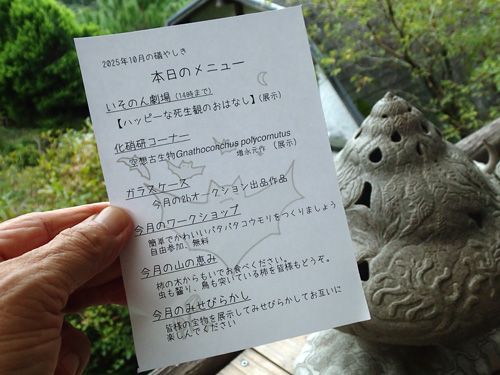 2025年10月の磯やしき
本日のメニュー
いそのん劇場（14時まで）
【ハッピーな死生観のおはなし】（展示）
化硝研コーナー
空想古生物Gnathoconchius polycornutus
増永元作 （展示）
ガラスケース
今月のBhオークション出品作品
今月のワークショップ
簡単でかわいいパタパタコウモリをつくりましょう
自由参加、無料
今月の山の恵み
柿の木からもいでお食べください。
虫も齧り、鳥も突いている柿を皆様もどうぞ。
今月のみせびらかし
皆様の宝物を展示してみせびらかしてお互いに
楽しんでください